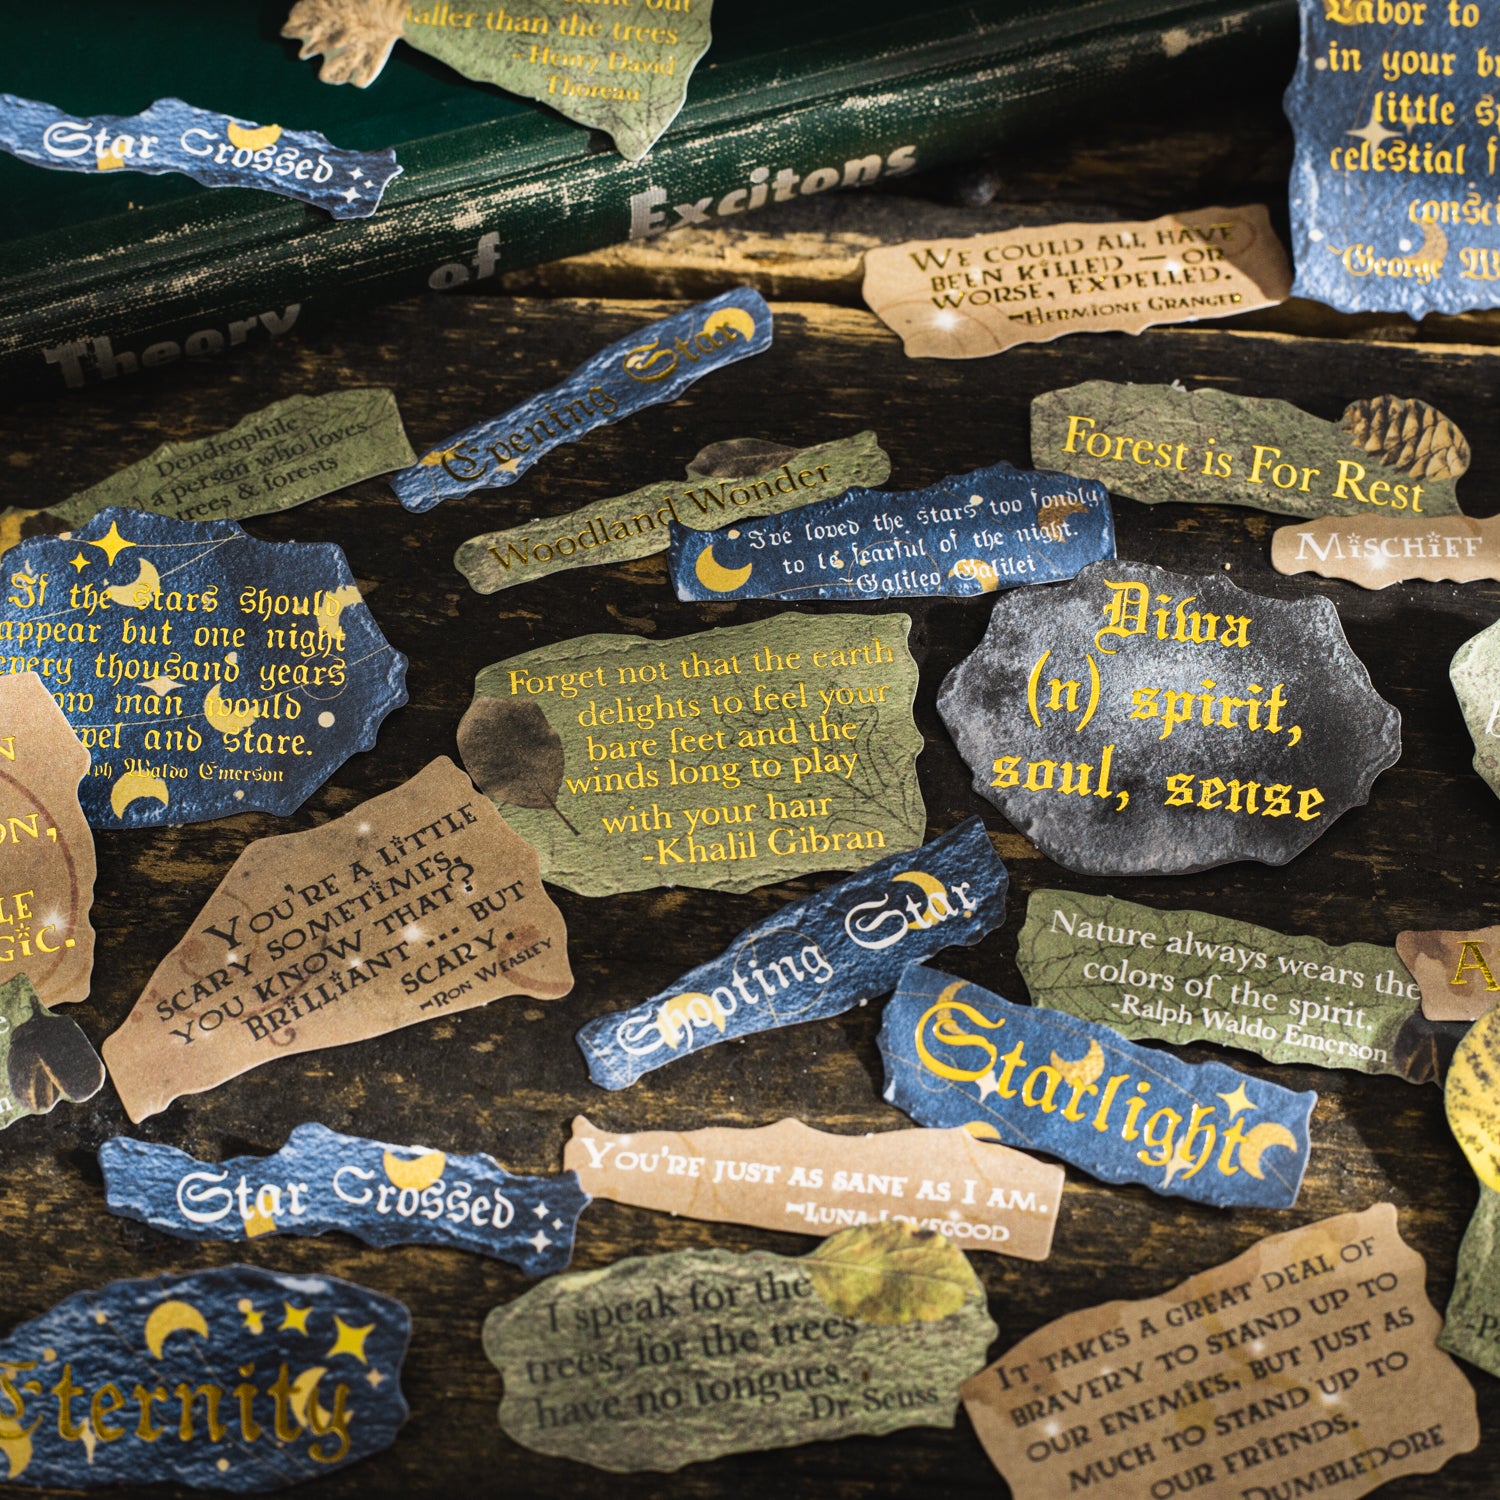 taller than the trees
- Henry David
Thoreau
Star Crossed
Theory of Excitons
Labor to
in your
little
celestial
~George
We could all have
been killed — or
worse, expelled.
~Hermione Granger
Evening Star
Dendrophile
a person who loves
trees & forests
Woodland Wonder
I've loved the stars too fondly
to be fearful of the night.
~Galileo Galilei
Forest is For Rest
Mischief
If the stars should
appear but one night
every thousand years
how man would
and stare.
Waldo Emerson
Forget not that the earth
delights to feel your
bare feet and the
winds long to play
with your hair
-Khalil Gibran
Diwa
(n) spirit,
soul, sense
You're a little
scary sometimes,
you know that?
Brilliant ... but
scary.
~Ron Weasley
Shooting Star
Nature always wears the
colors of the spirit.
-Ralph Waldo Emerson
Starlight
Star Crossed
You're just as sane as I am.
~Luna Lovegood
Eternity
I speak for the
trees, for the trees
have no tongues.
-Dr. Seuss
It takes a great deal of
bravery to stand up to
our enemies, but just as
much to stand up to
our friends.
Dumbledore